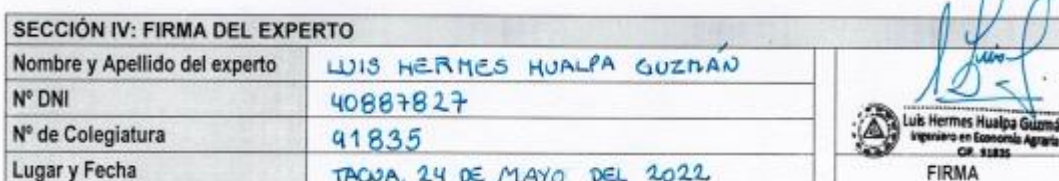 SECCIÓN IV: FIRMA DEL EXPERTO
Nombre y Apellido del experto LUIS HERMES HUALPA GUZMÁN
Nº DNI 40887827
Nº de Colegiatura 91835
Lugar y Fecha TACNA, 24 DE MAYO DEL 2022
Luis Hermes Hualpa Guzmá
Ingeniero en Economía Agraria
CIP. 91835
FIRMA